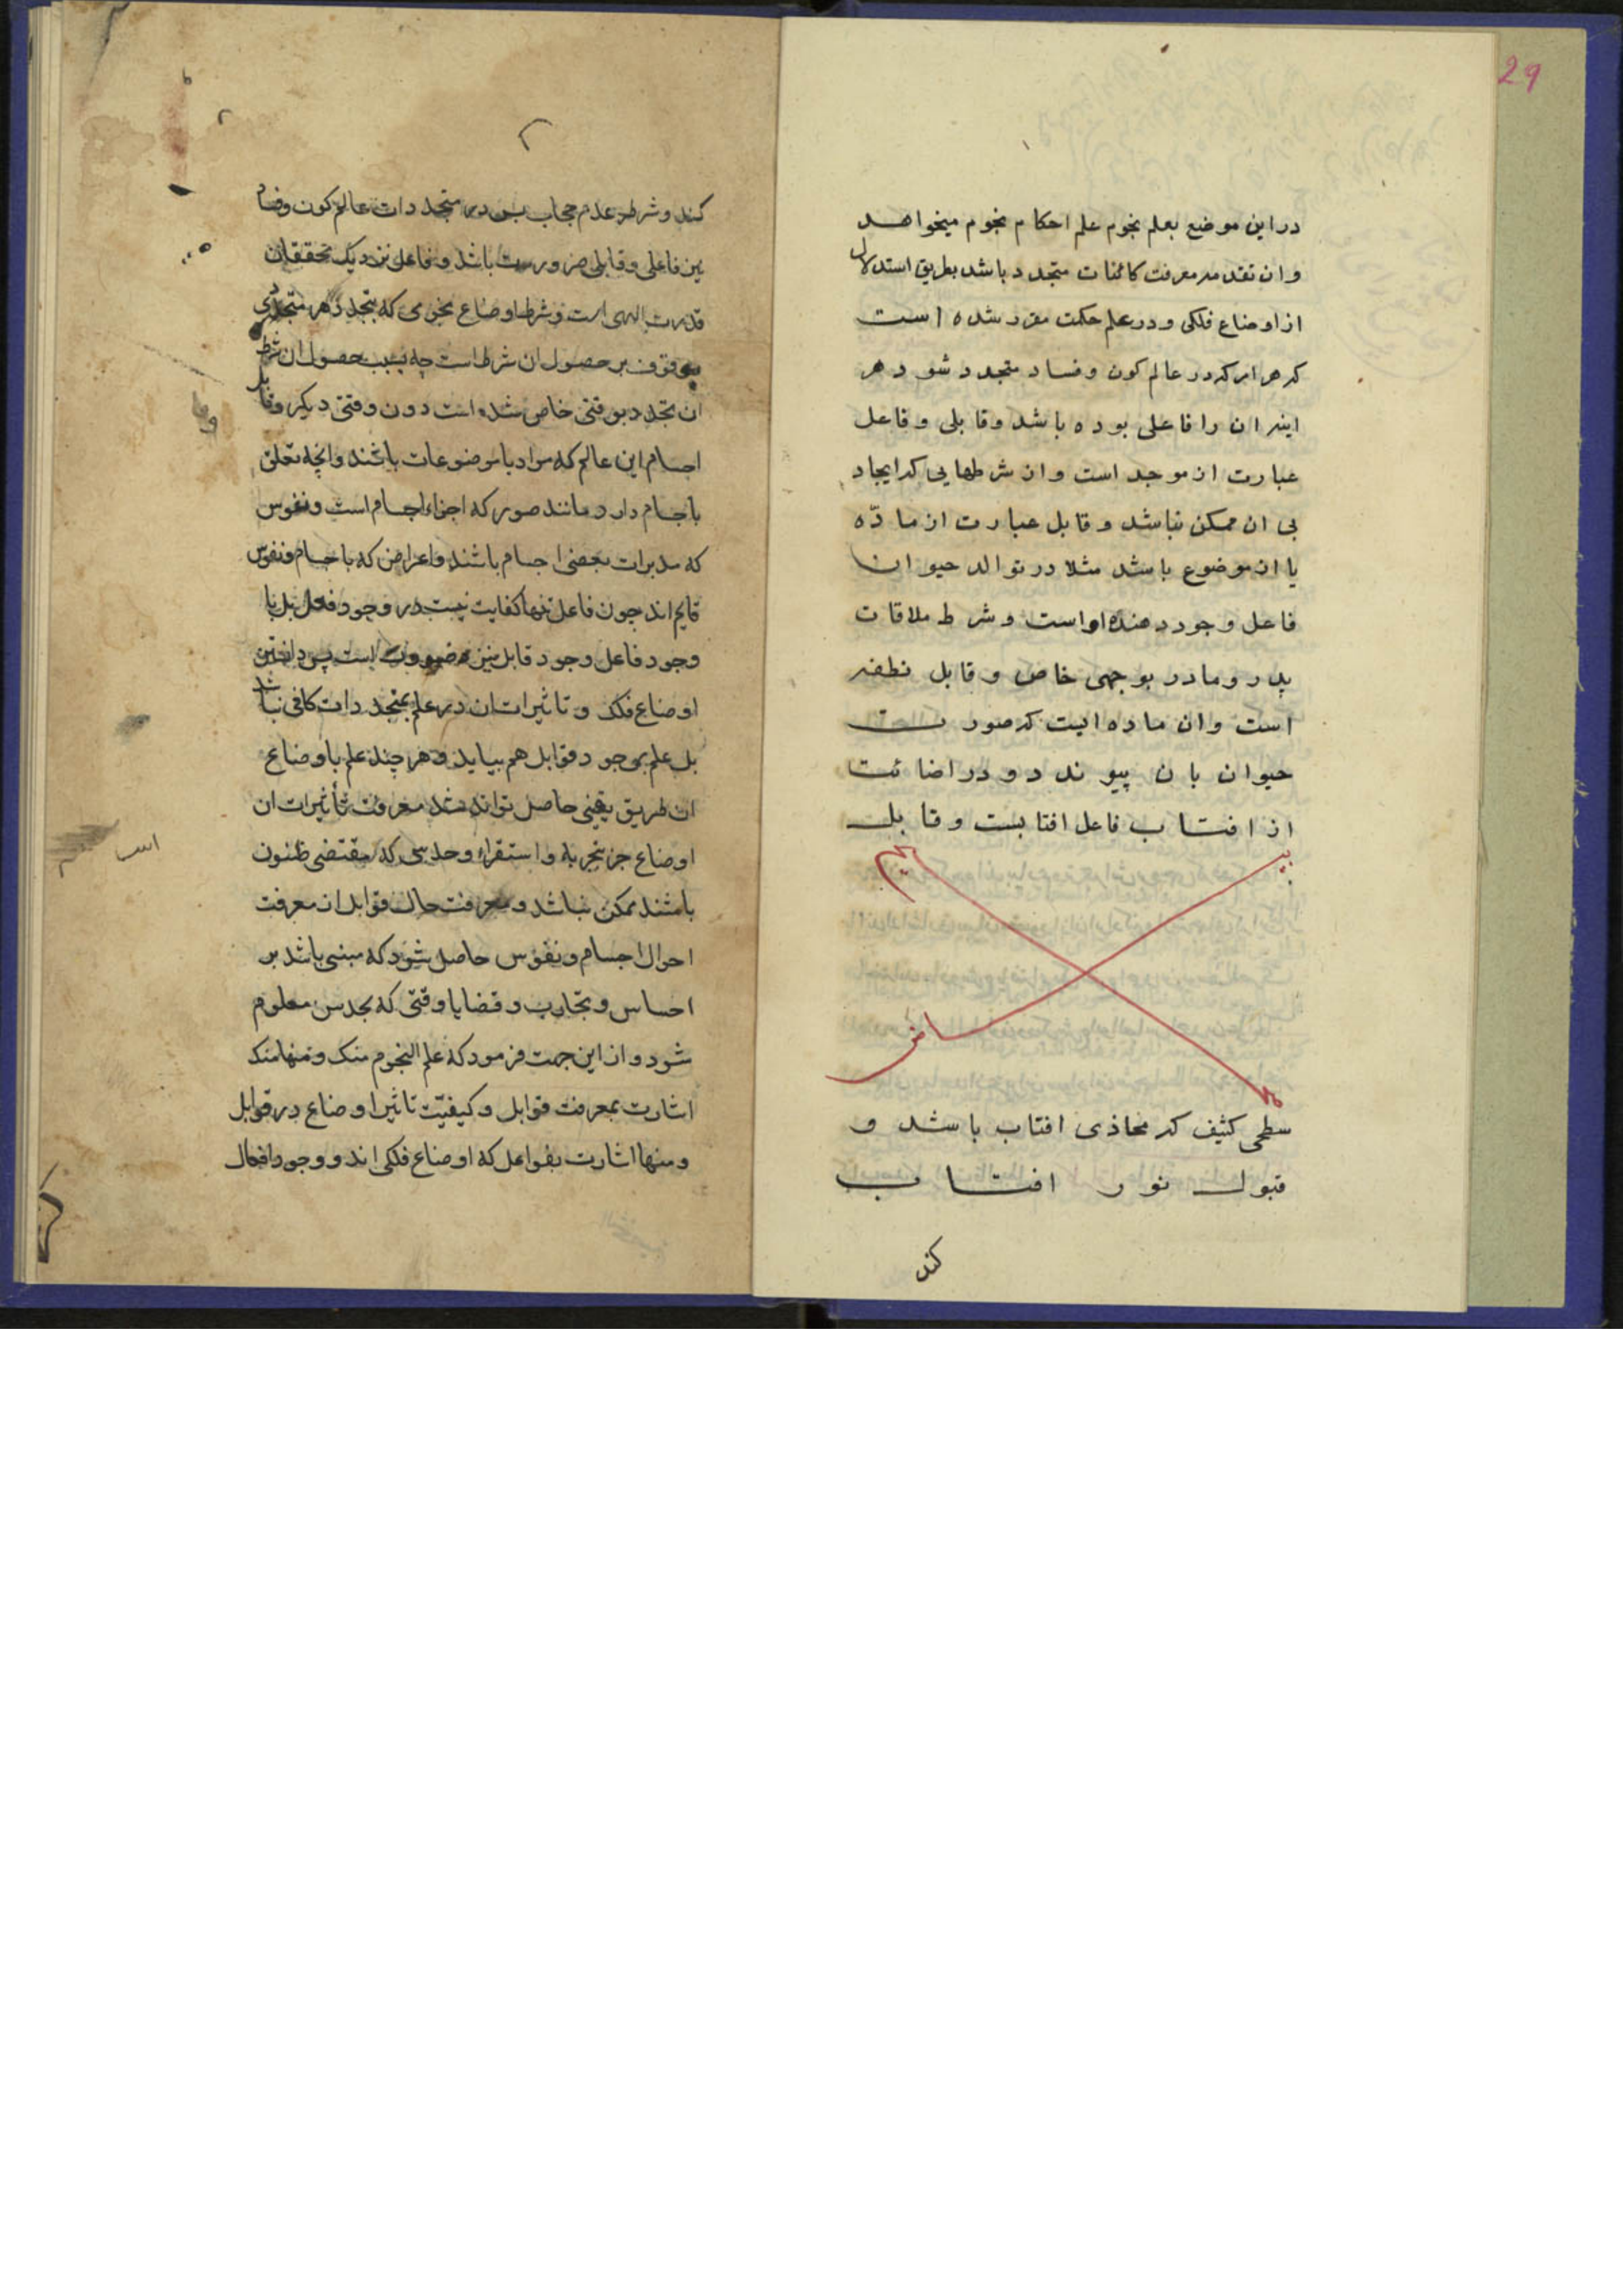 29
در این موضع بعلم نجوم علم احکام نجوم میخواهد
و ان تقدمه معرفت کائنات متجدد باشد بطریق استدلال
از اوضاع فلکی و در علم حکمت مقرر شده است
که هر امر که در عالم کون و فساد متجدد شود هر
اینه ان را فاعلی بوده باشد و قابلی و فاعل
عبارت از موجد است و ان شرطهایی که ایجاد
بی ان ممکن نباشد و قابل عبارت از مادّه
یا از موضوع باشد مثلا در توالد حیوان
فاعل وجود دهنده او است و شرط ملاقات
پدر و مادر بوجهی خاص و قابل نطفه
است و ان ماده ایست که صورت
حیوان بان پیوندد و در اضائت
از افتاب فاعل افتابست و قابل
سطحی کثیف که محاذی افتاب باشد و
قبول نور افتاب
کند
کند و شرط عدم حجاب پس در متجددات عالم کون و فساد
نیز فاعلی و قابلی ضرورت باشد و فاعل نزدیک محققان
قدرت الهی است و شرط اوضاع نجومی که تجدد هر متجددی
موقوف بر حصول ان شرط است چه بسبب حصول ان شرط
ان تجدد بوقتی خاص شده است دون وقتی دیکر و قابل
اجسام این عالم که مواد یا موضوعات باشند وانچه تعلق
باجسام دارد مانند صور که اجزاء اجسام است و نفوس
که مدبرات بعضی اجسام باشند و اعراض که باجسام و نفوس
قایم اند چون فاعل تنها کفایت نیست در وجود فعل بل با
وجود فاعل وجود قابل نیز ضرورت است پس دانستن
اوضاع فلک و تاثیرات ان در علم بمتجددات کافی نباشد
بل علم بوجود قوابل هم بباید و هر چند علم باوضاع
از طریق یقینی حاصل تواند شد معرفت تأثیرات ان
اوضاع جز بتجربه و استقراء و حدسی که مقتضی ظنون
باشند ممکن نباشد و معرفت حال قوابل از معرفت
احوال اجسام و نفوس حاصل شود که مبنی باشد بر
احساس و تجارب و قضایا وقتی که بحدس معلوم
شود و از این جهت فرمود که علم النجوم منک و منها منک
اشارت بمعرفت قوابل و کیفیّت تاثیر اوضاع در قوابل
و منها اشارت بفواعل که اوضاع فلکی اند و وجود افعال